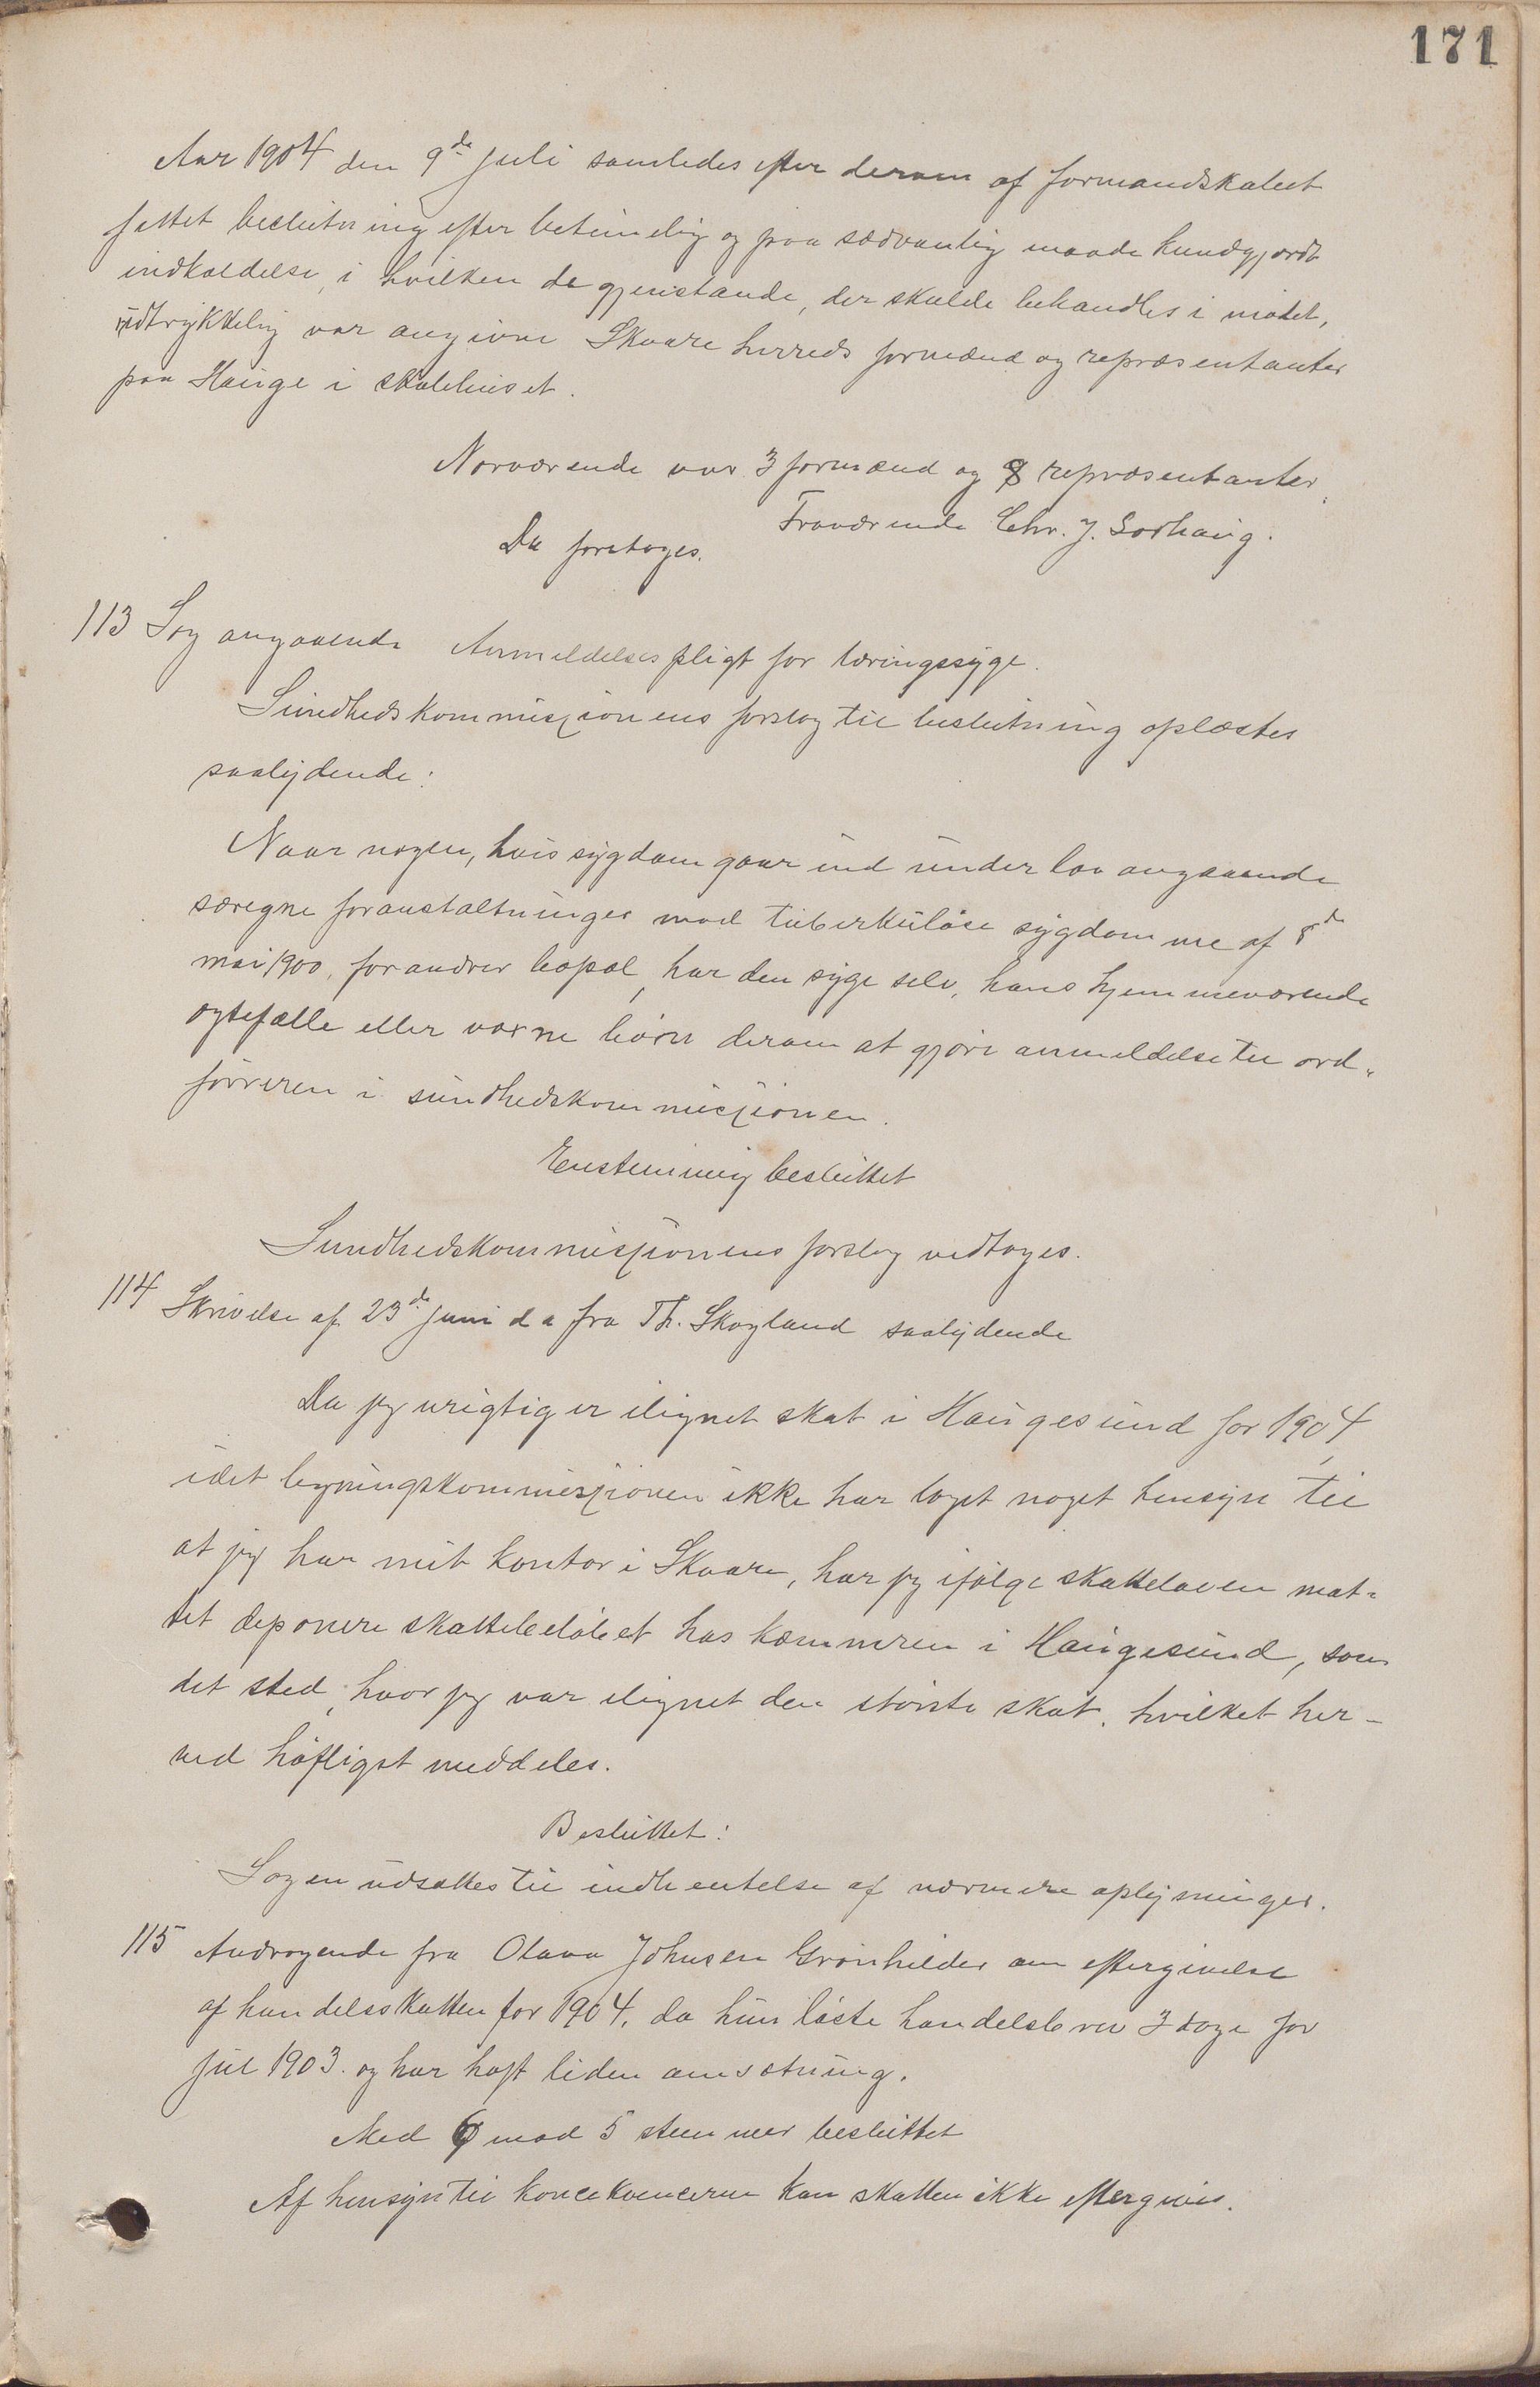 171
Aar 1904 den 9de juli samledes efter derom af formandskabet
fattet beslutning efter betimelig og paa sædvanlig maade kundgjordt
indkaldelse, i hvilken de gjenstande, der skulde behandles i mødet,
udtrykkelig var angivne Skaare herreds formænd og repræsentanter
paa Hauge i skolehuset.
Nærværende var 3 formænd og 8 repræsentanter.
Fraværende Chr. J. Sørhaug.
Da foretoges.
113 Sag angaaende Anmeldelsespligt for tæringssyge.
Sundhedskommissionens forslag til beslutning oplæstes
saalydende:
Naar nogen, hvis sygdom gaar ind under lov angaaende
særegne foranstaltninger mod tuberkuløse sygdomme af 8de
mai 1900, forandrer bopæl, har den syge selv, hans hjemmeværende
ægtefælle eller voxne børn derom at gjøre anmeldelse til ord-
føreren i sundhedskommissionen.
Enstemmig besluttet
Sundhedskommissionens forslag vedtoges.
114 Skrivelse af 23de juni d a fra Th. Skogland saalydende
Da jeg urigtig er ilignet skat i Haugesund for 1904,
idet ligningskommissionen ikke har taget noget hensyn til
at jeg har mit kontor i Skaare, har jeg ifølge skatteloven maat-
tet deponere skattebeløbet hos kæmneren i Haugesund, som
det sted, hvor jeg var ilignet den største skat, hvilket her-
ved høfligst meddeles.
Besluttet:
Sagen udsættes til indhentelse af nærmere oplysninger.
115 Andragende fra Olava Johnsen Grønhilder om eftergivelse
af handelsskatten for 1904, da hun løste handelsbrev 3 dage før
jul 1903 og har haft liden omsætning.
Med 6 mod 5 stemmer besluttet
Af hensyn til koncekvencerne kan skatten ikke eftergives.